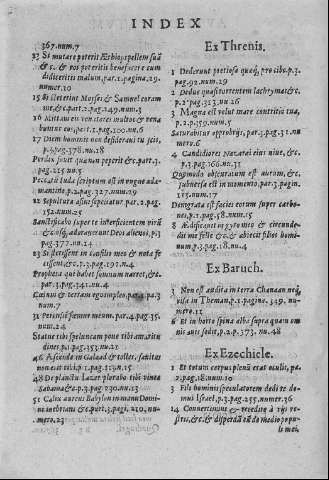 INDEX
367.num.7
13 Si mutare poterit Æthiops pellem suã
& c. & vos poteritis benefacere cum
didiceritis malum. par.1.pagina.29.
numero.10
15 Si steterint Moises & Samuel coram
me, &c. part.2.pag.249.num.3
16 Mittam venatores multos & vena
buntur eos. part.1.pag.100.nu.6
17 Diem hominis non desideraui tu scis,
pag.378.nu.18
Perdix fouit quæ non peperit &c. part.3.
pag.225.nu.5
Peccatũ Iuda scriptum est in vngue ada-
mantino. p.2.pag.327.num.29
22 Sepultura asini sepelietur par.2.pag.
152.num.25
Sanctificabo super te interficientem virũ
pag.377.nu.14
23 Si stetissent in consilio meo & nota fe
cissent, &c. p.3.pag.192.n.4
Propheta qui habet somnium narret, &c.
par.3.pag.341.nu.4
num.7
31 Femina num.
num.24
Statue tibi speluncam pone tibi amaritu
dines pag.353.nu.21
46 Ascende in Galaad & toller, sanitas
non est tibi p.1.pag.139.n.15
48 De planctu Lazer plorabo tibi vinea
Sabama &c. p.3.pag.230.nu.13
51 Calix aureus Babylon in manu Domi-
ni inebrians &c. part.3.pagi.210.nu-
mero.23
Ex Threnis.
1 Dederunt pretiosa quæq; pro cibo. p.3.
pag.92.num.29
2 Deduc quasi torrentem lachrymas &c.
p.2.pag.313.nu.26
3 Magna est velut mare contritio tua,
p.2.p.39.num.5
Saturabitur opprobrijs, par.3.pag.31.nu
mero.6
4 Candidiores Nazarei eius niue, &c.
p.3.pag.166.nu.31
Quomodo obscuratum est aurum, &c.
subuersa est in momento. par.3.pagina,
115.num.17
Denigrata est facies eorum super carbo-
nes. p.1.pag.58.num.15
8 Ædificauit in gyro meo & circunde-
dit me felle &c. & abiecit filios homi-
num, p.3.pag.18.nu.4
Ex Baruch.
3 Non est audita in terra Chanaan neq;
visa in Theman, p.1.pagina.349.nu-
mero.12
6 Et in horto spina alba supra quam om
nis auis sedit, p.2.p.373.nu.48
Ex Ezechiele.
1 Et totum corpus plenũ erat oculis, pa.
2.pag.18.num.10
3 Fili hominis speculatorem dedi te do-
mui Israel, p.3.pag.255.numer.36
14 Conuertimini & recedite à vijs ve-
stris, &c. & disperdã eũ de medio popu-
li mei,